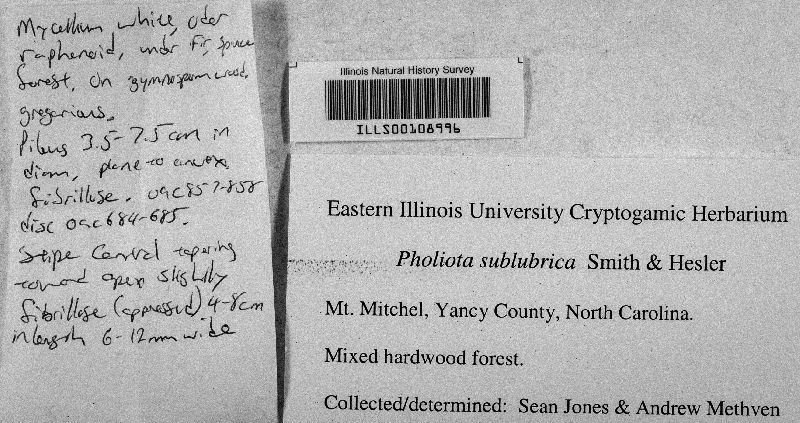 Mycelium white, odor
raphanoid, under fir, spruce
forest. On gymnosperm wood,
gregarious.
Pileus 3.5-7.5 cm in
diam, plane to convex,
fibrillose. OAC 857-858
disc OAC 684-685.
Stipe Central tapering
toward apex slightly
fibrillose (appressed) 4-8cm
in length 6-12mm wide
Illinois Natural History Survey
ILLS00108996
Eastern Illinois University Cryptogamic Herbarium
Pholiota sublubrica Smith & Hesler
Mt. Mitchel, Yancy County, North Carolina.
Mixed hardwood forest.
Collected/determined: Sean Jones & Andrew Methven